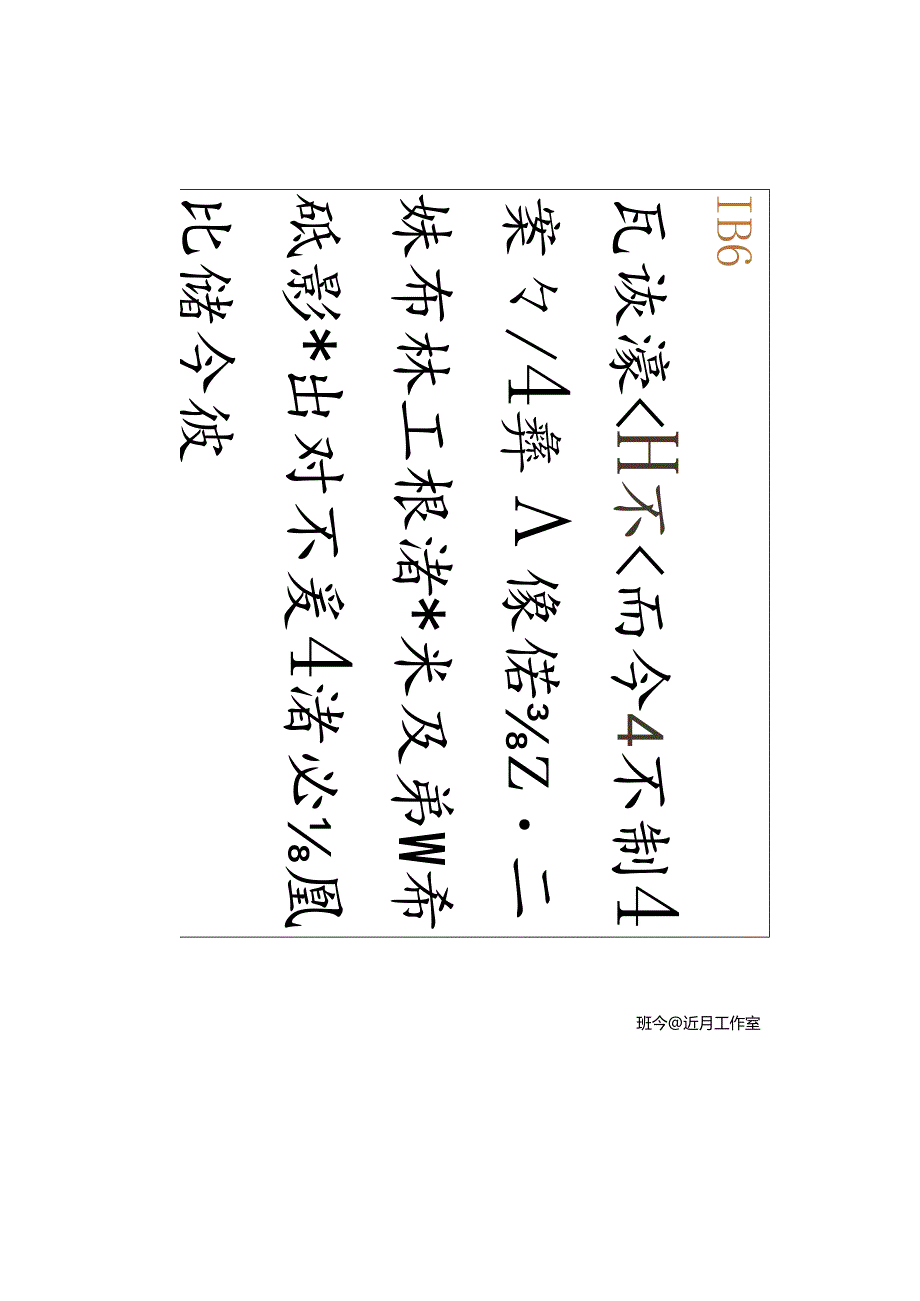 IB6
瓦诙濠<H不<而今4不制4
案ㄅ/4彝Λ像偌⅜Z·二
妹布林工根渚*米及弟W希
砥影*出对不爱4渚必⅛凰
比储今彼
班今@近月工作室